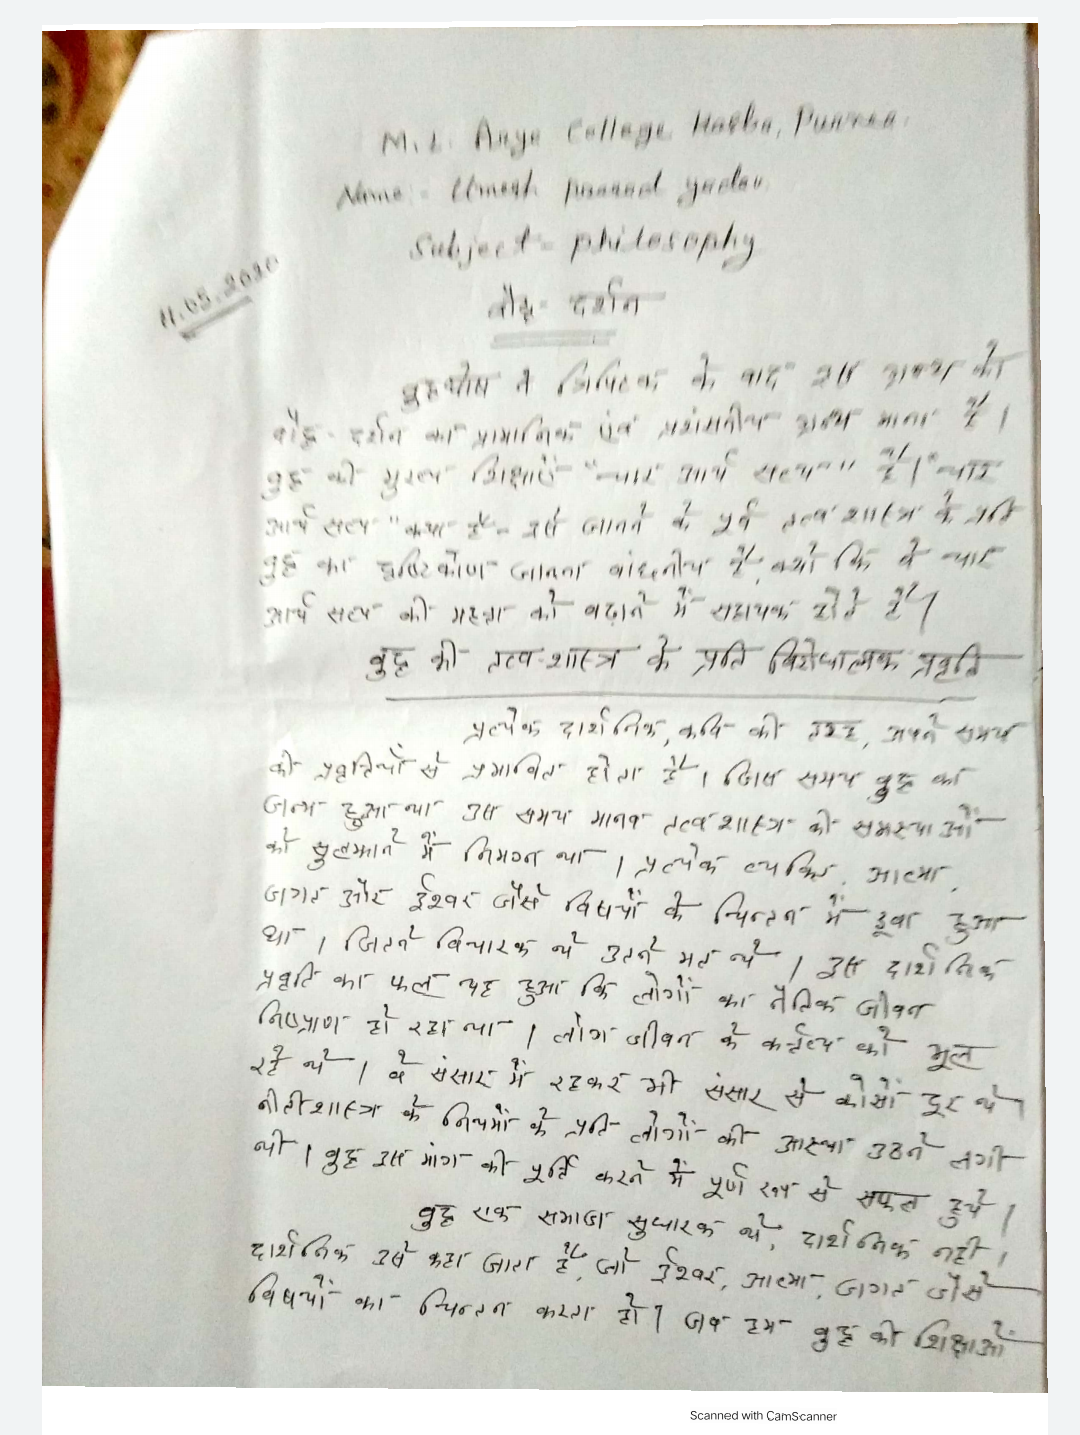 M. L. Arya College Kasba, Purnea.
Name:- Umesh prasad yadav
Subject - philosophy
11.05.2020
बौद्ध - दर्शन
बुद्धघोष ने त्रिपिटक के बाद इस ग्रन्थ को
बौद्ध - दर्शन का प्रामानिक एवं प्रशंसनीय ग्रन्थ माना है।
बुद्ध की मुख्य शिक्षाएँ "चार आर्य सत्य" है। "चार
आर्य सत्य" क्या है - इसे जानने के पूर्व तत्व शास्त्र के प्रति
बुद्ध का दृष्टिकोण जानना वांछनीय है, क्यों कि वे चार
आर्य सत्य की महत्ता को बढ़ाने में सहायक होते हैं।
बुद्ध की तत्व-शास्त्र के प्रति विरोधात्मक प्रवृति
प्रत्येक दार्शनिक, कवि की तरह, अपने समय
की प्रवृत्तियों से प्रभावित होता है। जिस समय बुद्ध का
जन्म हुआ था उस समय मानव तत्व शास्त्र की समस्याओं
को सुलझाने में निमग्न था। प्रत्येक व्यक्ति, आत्मा,
जगत और ईश्वर जैसे विषयों के चिन्तन में डूबा हुआ
था। जितने विचारक थे उतने मत थे। इस दार्शनिक
प्रवृति का फल यह हुआ कि लोगों का नैतिक जीवन
निष्प्राण हो रहा था। लोग जीवन के कर्त्तव्य को भूल
रहे थे। वे संसार में रहकर भी संसार से कोसों दूर थे।
नीतीशास्त्र के नियमों के प्रति लोगों की आस्था उठने लगी
थी। बुद्ध उस मांग की पूर्ति करने में पूर्ण रूप से सफल हुये।
बुद्ध एक समाज सुधारक थे, दार्शनिक नहीं।
दार्शनिक उसे कहा जाता है, जो ईश्वर, आत्मा, जगत जैसे
विषयों का चिन्तन करता हो। जब हम बुद्ध की शिक्षाओं
Scanned with CamScanner